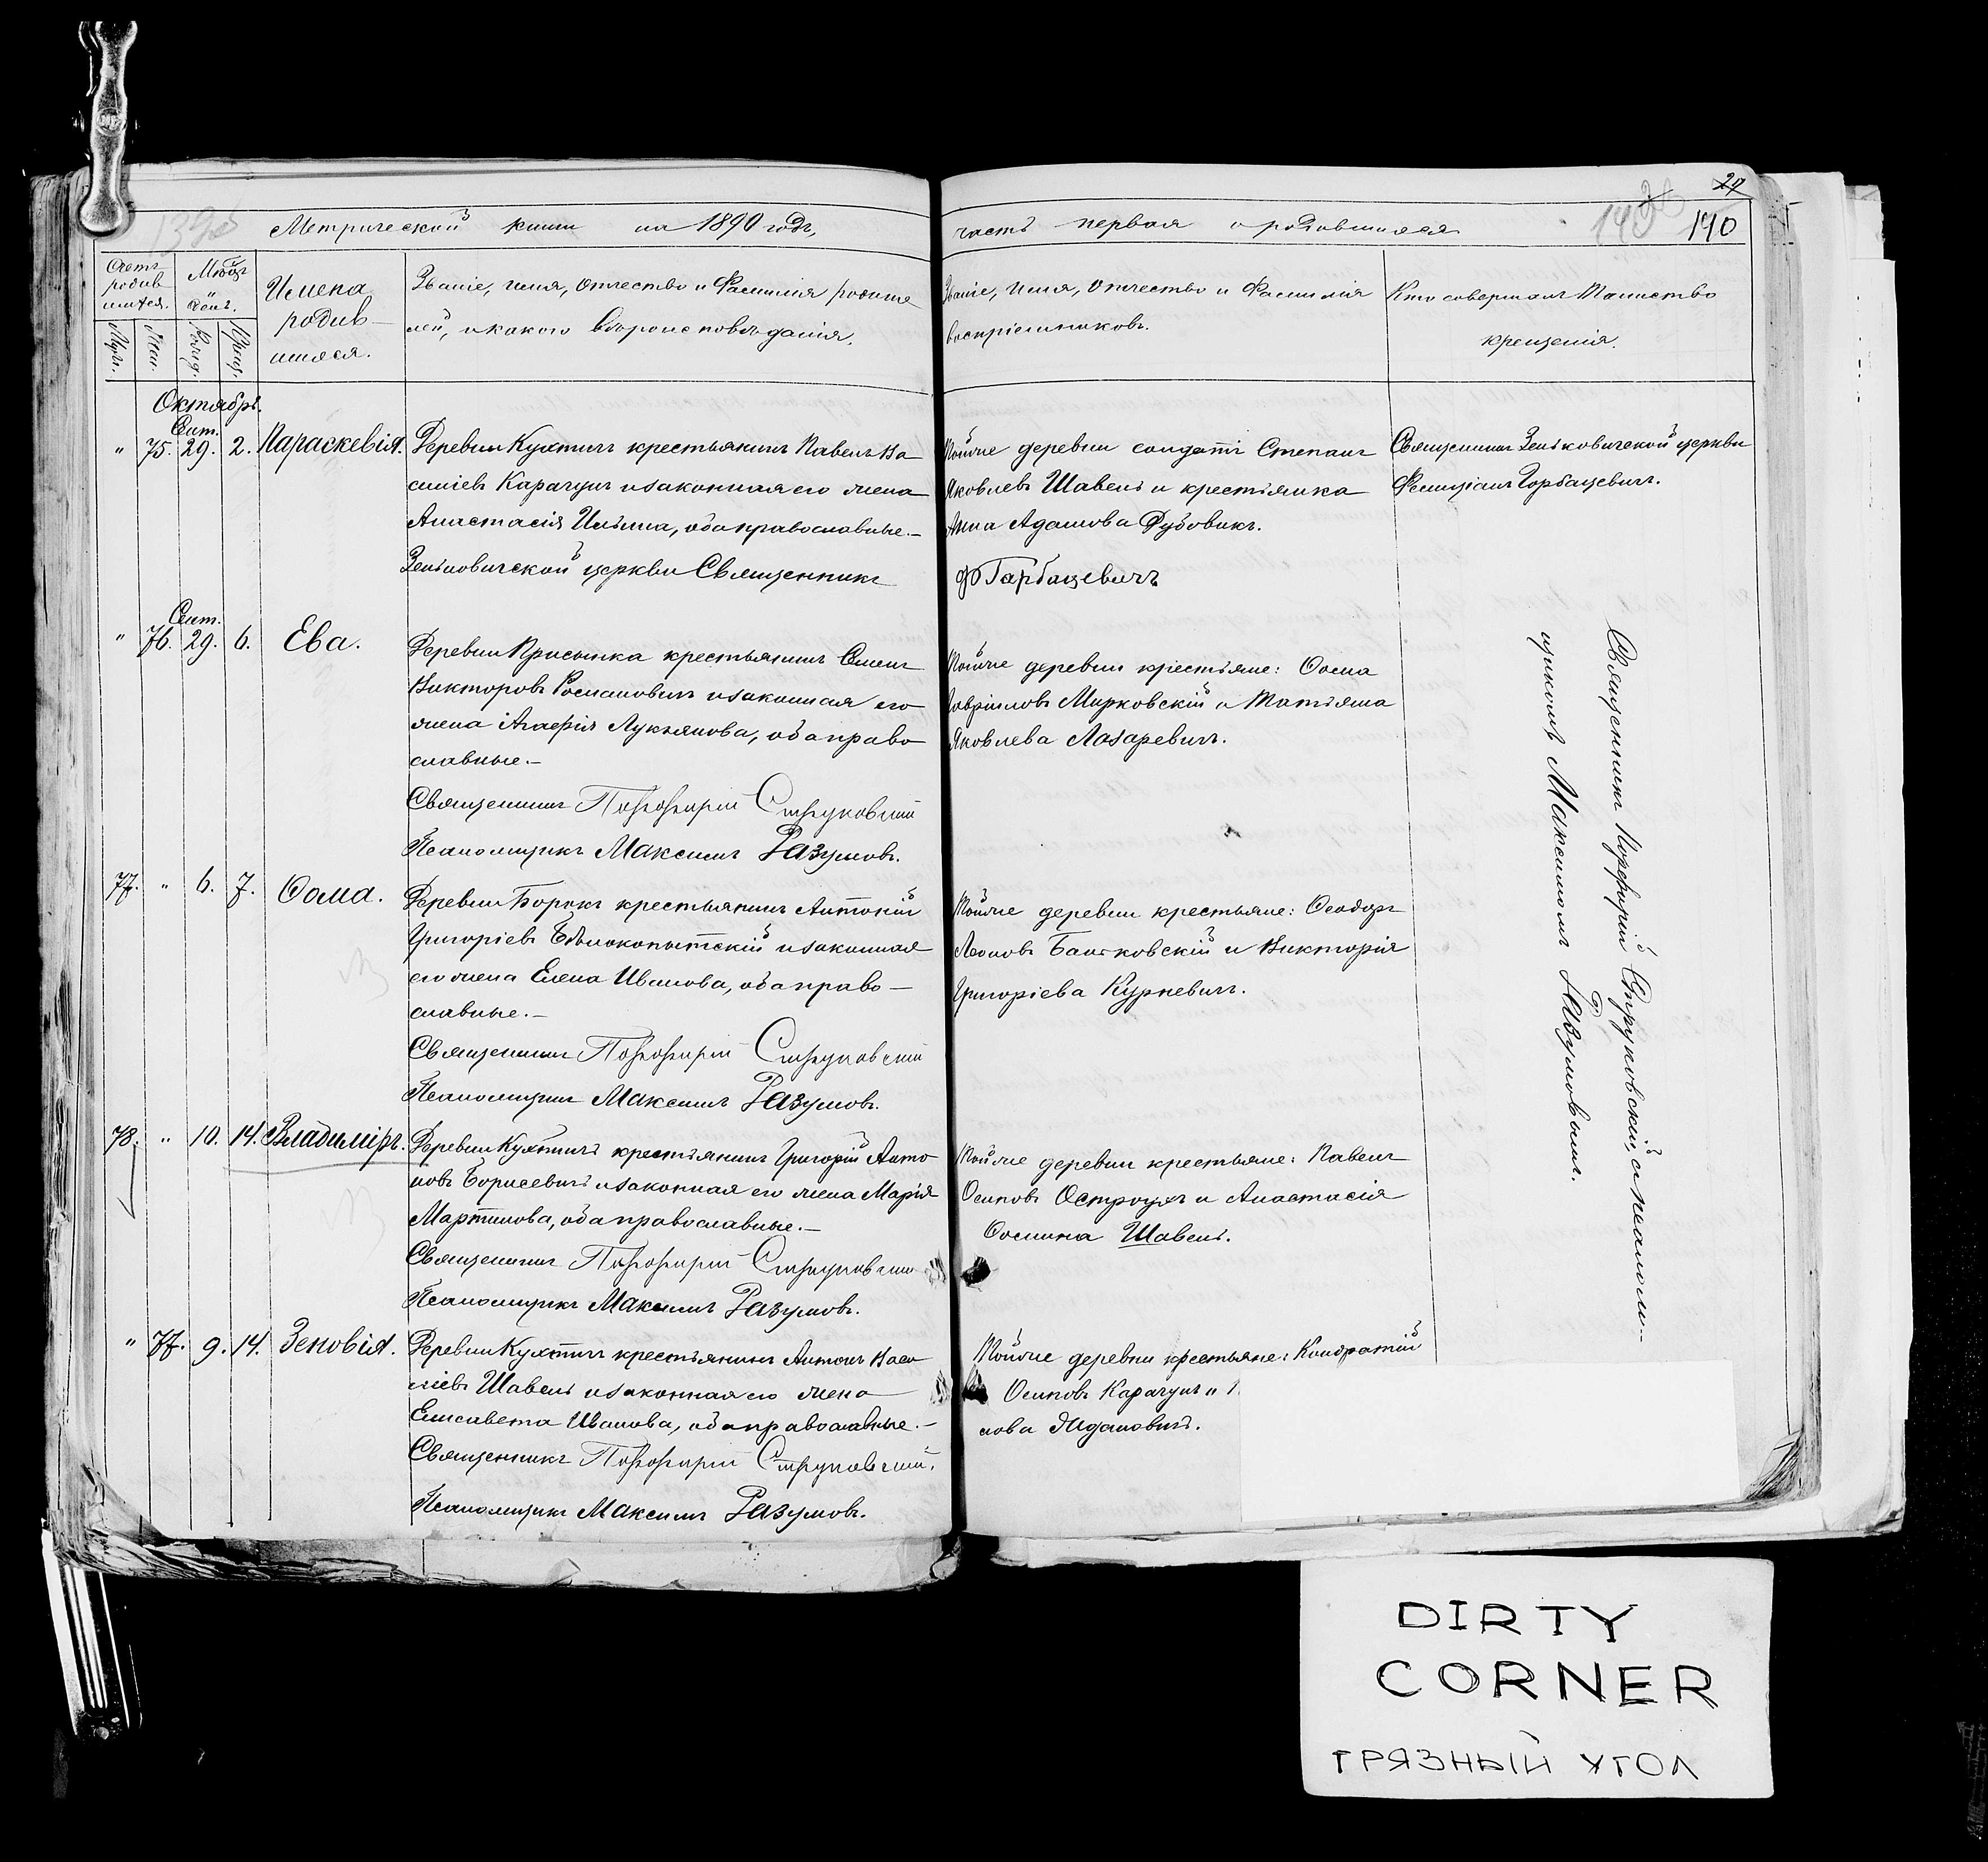 Метрической книги на 1890 годъ,
часть первая о родившихся
29
140
Счетъ родив шихся.
Муж.
Жен.
Мѣсяцъ и день.
Рожд.
Крещ.
Имена
родив-
шихся.
Званіе, имя, отчество и фамилія родите
лей, и какого вѣроисповѣданія.
Званіе, имя, отчество и фамилія
воспріемниковъ.
Кто совершалъ таинство
крещенія.
Октябрь.
Сент.
" 75. 29. 2. Параскевія.
Деревни Кухтичъ крестьянинъ Павелъ Ва
силіевъ Карачунъ и законная его жена
Анастасія Ильина, оба православные.–
Зеньковичской церкви Священникъ
Тойже деревни солдатъ Степанъ
Яковлевъ Шавель и крестьянка
Анна Адамова Дубовикъ.
Ф Горбацевичъ
Священникъ Зеньковичской церкви
Фелиціанъ Горбацевичъ.
Сент.
" 76. 29. 6. Ева.
Деревни Присынка крестьянинъ Семенъ
Викторовъ Романовичъ и законная его
жена Агафія Лукьянова, оба право
славные.–
Священникъ Порфирій Струковскій
Псаломщикъ Максимъ Разумовъ.
Тойже деревни крестьяне: Ѳома
Гавріиловъ Мирковскій и Татьяна
Яковлева Лазаревичъ.
77. " 6. 7. Ѳома.
Деревни Борокъ крестьянинъ Антоній
Григоріевъ Бѣлокопытскій и законная
его жена Елена Иванова, оба право–
славные.–
Священникъ Порфирій Струковскій
Псаломщикъ Максимъ Разумовъ.
Тойже деревни крестьяне: Ѳеодоръ
Леоновъ Баньковскій и Викторія
Григоріева Куркевичъ.
78. " 10. 14. Владиміръ.
Деревни Кухтичъ крестьянинъ Григорій Анто
новъ Борисевичъ и законная его жена Марія
Мартинова, оба православные.–
Священникъ Порфирій Струковскій
Псаломщикъ Максимъ Разумовъ.
Тойже деревни крестьяне: Павелъ
Осиповъ Остроухъ и Анастасія
Ѳомина Шавель.
" 77. 9. 14. Зеновія.
Деревни Кухтичъ крестьянинъ Антонъ Васи
ліевъ Шавель и законная его жена
Елисавета Иванова, оба православные.–
Священникъ Порфирій Струковскій.
Псаломщикъ Максимъ Разумовъ.
Тойже деревни крестьяне: Кондратій
Осиповъ Карачунъ и
нова Ждановичъ.
Священникъ Порфирій Струковскій, съ псалом–
щикомъ Максимомъ Разумовымъ.
DIRTY
CORNER
ГРЯЗНЫЙ УГОЛ